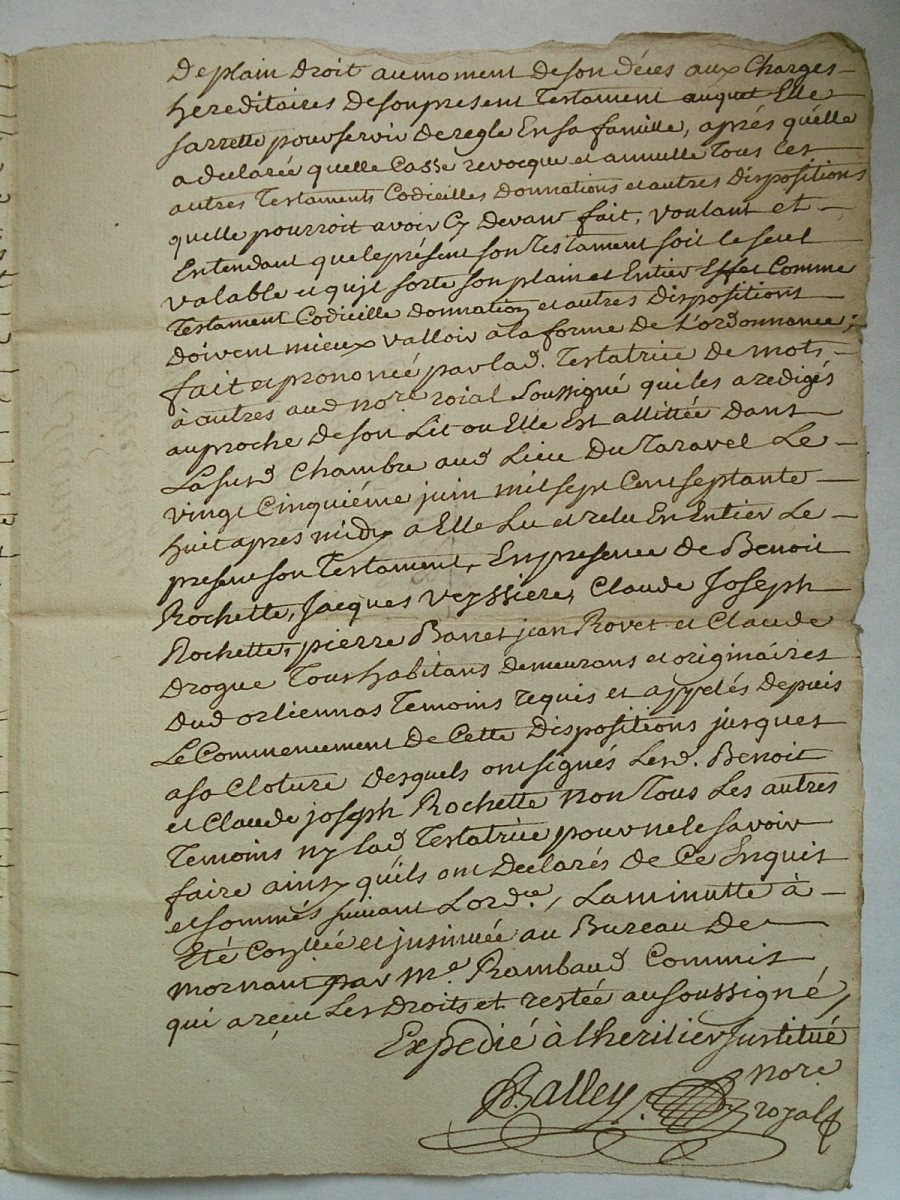 De plain droit au moment de son décès aux Charges
hereditaires de son present Testament auquel Elle
sarrette pour servir De regle En sa famille, aprés quelle
a declarée quelle Casse revocque et annulle Tous ses
autres Testaments Codicilles donnations et autres dispositions
quelle pourroit avoir Cy devant fait, voulant et
Entendant que le présent son Testament soit le seul
valable et quil sorte son plain et Entier Effet Comme
Testament Codicille donnation et autres dispositions
doivent mieux valloir a la forme de L'ordonnance;
fait et prononcé par lad. Testatrice de mots
à autres aud nore roial soussigné qui les a redigés
au proche de son Lit ou Elle Est allittée dans
La susd Chambre aud Lieu Du Taravel Le
vingt Cinquiéme juin mil sept Cent septante
huit aprés midy a Elle Lu et relu En Entier Le
present son Testament, En presence de Benoit
Rochette, Jacques Veyssiere, Claude Joseph
Rochette, pierre Barret jean Rovet et Claude
Drogue Tous habitans demeurans et originaires
dud orliennas Temoins requis et appelés depuis
Le Commencement de Cette dispositions jusques
a sa Cloture desquels ont signés Lesd. Benoit
et Claude joseph Rochette non Tous Les autres
Temoins ny lad Testatrice pour ne le savoir
faire ainsy qu'ils ont Declarés de Ce Enquis
et sommés suivant L'ordce, La minutte à
Eté Conllée et insinuée au Bureau De
mornant par Me Rambaud Commis
qui a reçu Les Droits et restée au soussigné,
Expedié à lheritier Institué
Balley nore
royal